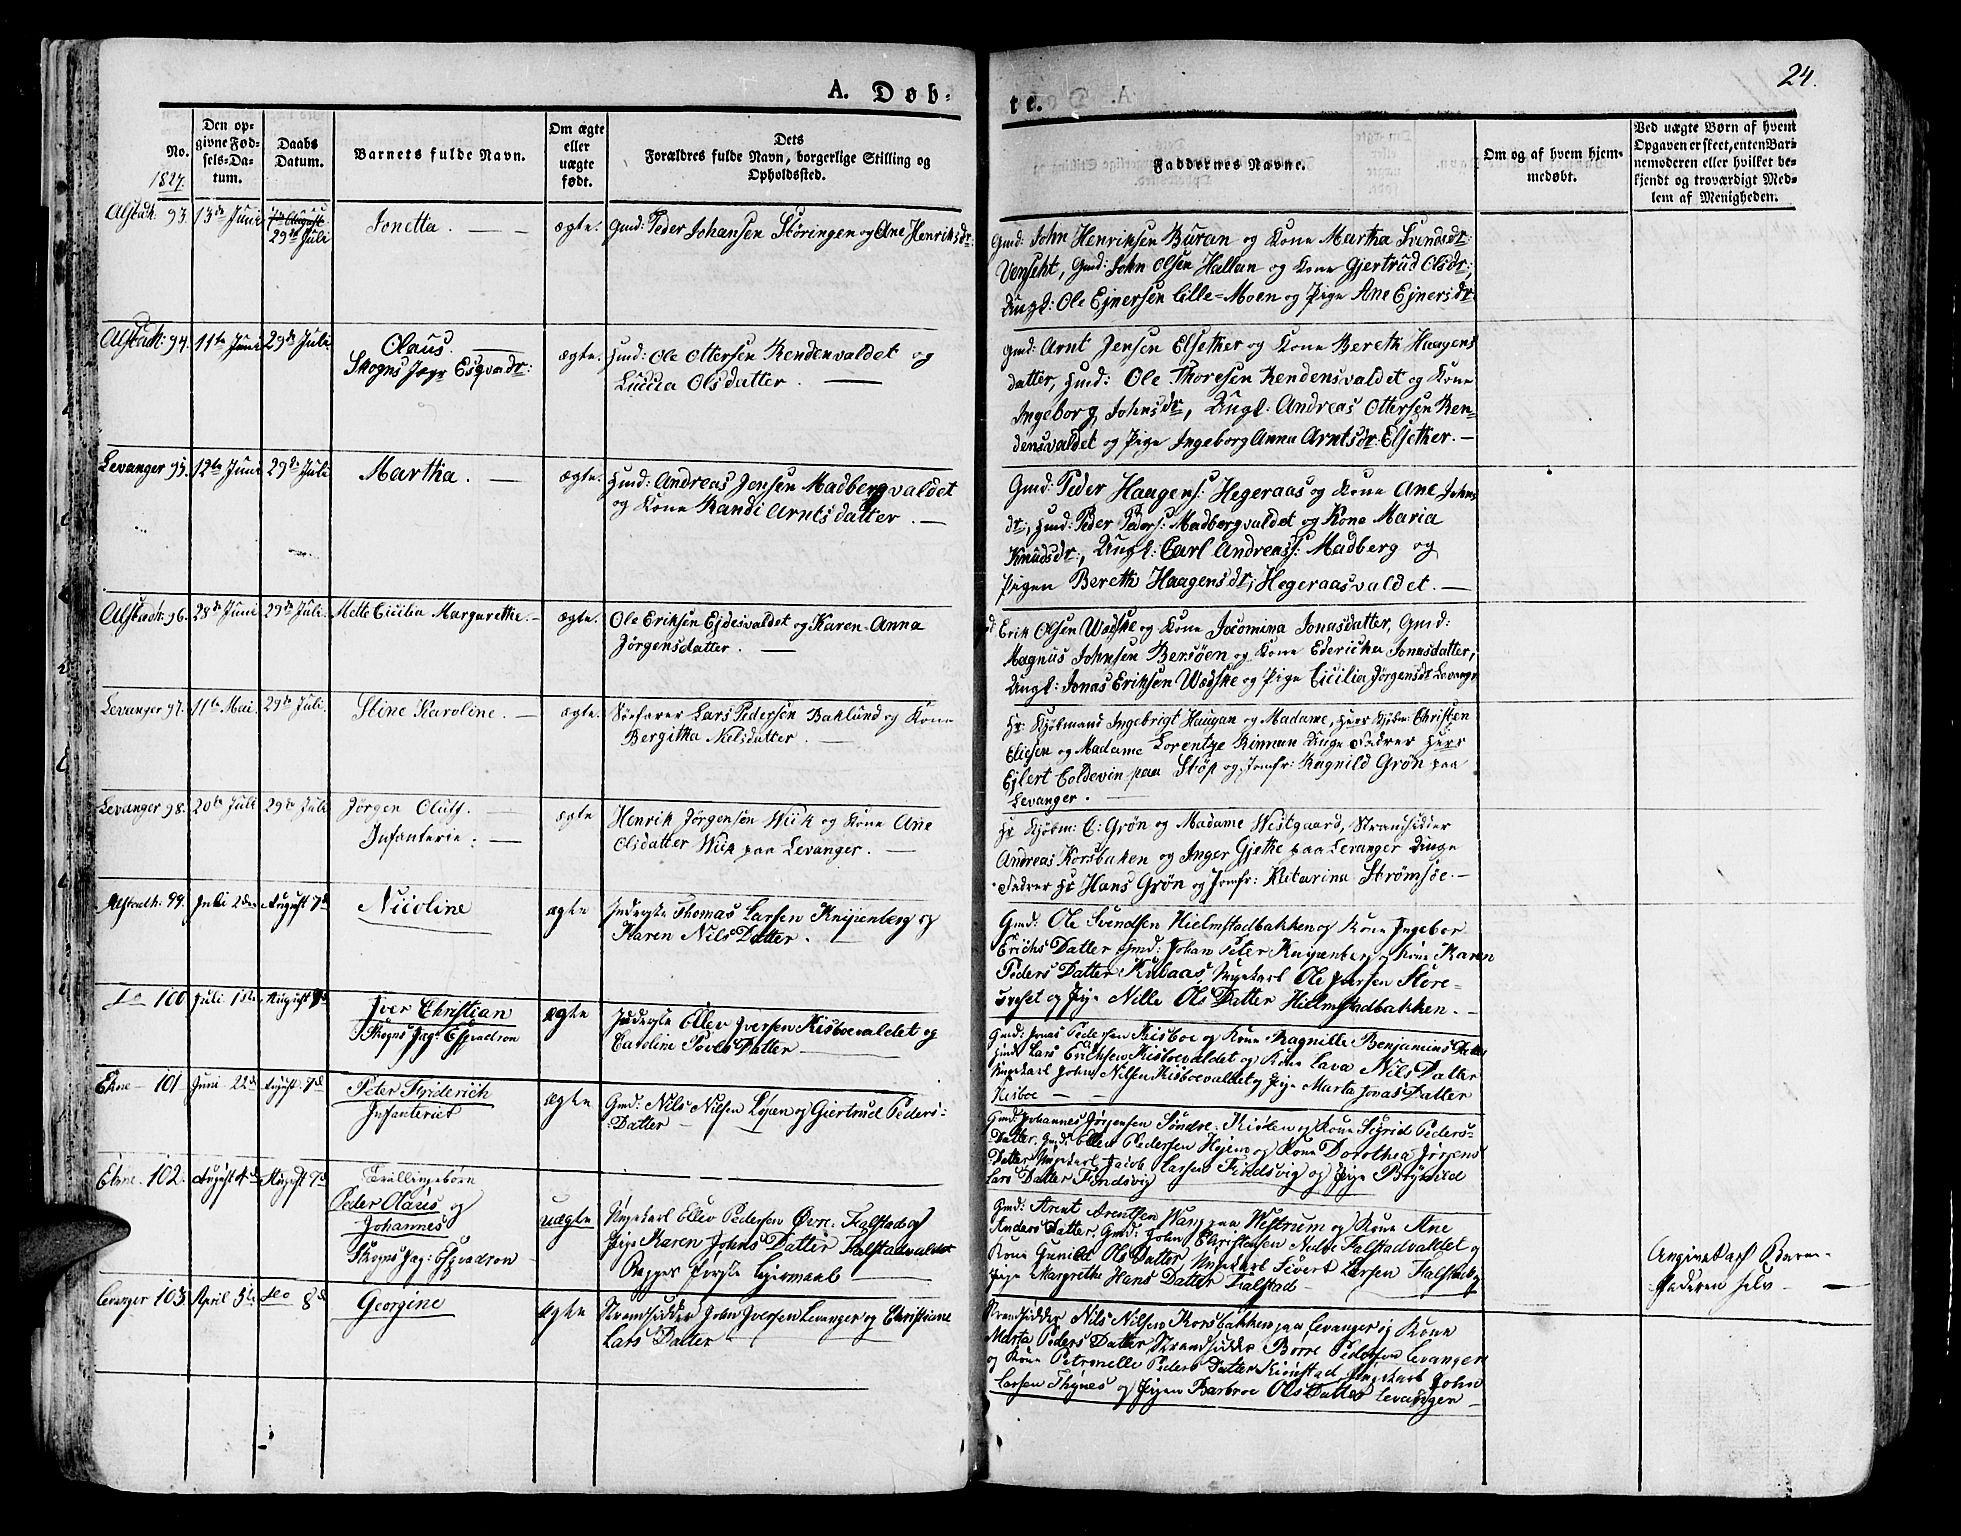 24.
A. Døb-
te.
No.
Den op-
givne Fød-
sels-Da-
tum.
Daabs
Datum.
Barnets fulde Navn.
Om ægte
eller
uægte
født.
Dets
Forældres fulde Navn, borgerlige Stilling og
Opholdssted.
Faddernes Navne.
Om og af hvem hjem-
medøbt.
Ved uægte Børn af hvem
Opgaven er skeet, enten Bar-
nemoderen eller hvilket be-
kjendt og troværdigt Med-
lem af Menigheden.
1827.
Alstadh: 93. 13de Juni
29de Juli
Jonetta.
ægte.
Gmd: Peder Johansen Støringen og Ane Henriksdr:
Gmd: John Henriksen Buran og Kone Martha Svendsdr:
Venseht, Gmd: John Olsen Hallan og Kone Gjertrud Olsdr;
Ungk: Ole Ejnersen Lille-Moen og Pige Ane Ejnersdr
Alstadh: 94. 11te Juni 29de Juli.
Olaus.
Skogns Jægr Esqvadr:
ægte.
Hmd: Ole Ottersen Rendenvaldet og
Luccia Olsdatter.
Gmd: Arnt Jensen Elsether og Kone Bereth Haagens
datter, Hmd: Ole Thoresen Rendensvaldet og Kone
Ingeborg Johnsdr, Ungk: Andreas Ottersen Ren-
densvaldet og Pige Ingeborg Anna Arntsdr: Elsether.
Levanger 95. 12te Juni 29de Juli
Martha.
ægte.
Hmd: Andreas Jensen Madbergvaldet
og Kone Randi Arntsdatter.
Gmd: Peder Haagens: Hegeraas og Kone Ane Johns
dr;, Hmd: Peder Peders: Madbergvaldet og Kone Maria
Knudsdr;, Ungk: Carl Andreass: Madberg og
Pigen Bereth Haagensdr; Hegeraasvaldet.
Alstadh: 96. 28de Juni 29de Juli.
Mette Cicilia Margarethe.
ægte.
Ole Eriksen Ejdesvaldet og Karen Anna
Jørgensdatter.
Erik Olsen Wadske og Kone Jocomina Jonasdatter, Gmd:
Magnus Johnsen Bersøen og Kone Edericka Jonasdatter;
Ungk: Jonas Eriksen Wadske og Pige Cicilia Jørgensdr Levangr
Levanger 97. 11te Mai. 29de Juli.
Stine Karoline.
ægte.
Søefarer Lars Pedersen Baklund og Kone
Bergitha Nielsdatter.
Hr: Kjøbmand Ingebrigt Haugan og Madame, Herr Kjøbm: Christen
Eliesen og Madame Lorentze Rinnan Unge Fadrer Herr
Ejlert Coldevin paa Støp og Jomfr: Ragnild Grøn paa
Levanger.
Levanger 98. 20de Juli 29de Juli
Jørgen Oluff.
Infanterie.
ægte
Henrik Jørgensen Wiik og Kone Ane
Olsdatter Wiik paa Levanger.
Hr Kjøbm: C: Grøn og Madame Westgaard, Strandsidder
Andreas Korsbaken og Inger Gjethe paa Levanger Unge
Fadrer Hr Hans Grøn og Jomfr: Kitarina Strømsøe.
Alstadh. 99. Juli 2den August 7de
Nicoline
ægte
Inderste Thomas Larsen Knipenberg og
Karen Nils Datter.
Gmd: Ole Svendsen Hielmstadbakken og Kone Ingebor
Erichs Datter Gmd: Johan Peter Knipenberg og Kone Karen
Peders Datter Kulaas Ungekarl Ole Persen Store-
og Pige Nille Ols Datter Hielmstadbakken.
Do 100 Juli 1ste August 7de
Iver Christian
Skogns Jag: Esqvadron
ægte
Inderste Ellev Iversen Risboevaldet og
Caroline Povels Datter
Gmd: Jonas Pedersen Risboe og Kone Ragnille Benjamins Datter
Hmd Lars Erichsen Risboevaldet og Kone Lava Nils Datter
Ungekarl John Nilsen Risboevaldet og Pige Marta Jonas Datter
Risboe
Ekne 101 Juni 22de August 7de
Peter Friderich
Infanteriet
ægte
Gmd: Nils Nilsen Løsen og Giertrud Peders-
Datter
Gmd: Johannes Jørgensen Søndre og Kone Sigrid Peders-
Datter, Gmd: Ellev Pedersen Hojem og Kone Dorothea Jørgens
Datter Ungekarl Jacob Larsen Findsvig og Pige
Lars Datter Findsvig
Ekne. 102. August 4de August 7de
Tvillingebørn
Peder Olaus og
Johannes
Skogns Jag: Esqvadron
uægte
Ungekarl Ellev Pedersen Øvre Falstad og
Pige Karen Johns Datter Falstadvaldet
Begges første Leiermaal
Gmd: Arent Arentsen Wang paa Westrum og Kone Ane
Anders Datter, Gmd: John Christensen Nedre Falstadvaldet og
Kone Gunild Ols Datter Ungekarl Sivert Larsen Falstad og
Pige Margrethe Hans Datter Falstad
Angivet af Barne-
Moderen selv
Levanger 103. April 5te do 8de
Georgine
ægte
Strandsidder John Iversen Levanger og Christiane
Lars Datter
Strandsidder Nils Nilsen Korsbakken paa Levanger og Kone
Marta Peders Datter Strandsidder Borre Pedersen Levanger
og Kone Petronelle Peders Datter Rinstad, Ungekarl John
Larsen Thynes og Pigen Barbroe Ols Datter Levanger